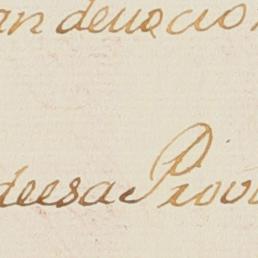 an devocion
deesa Provi